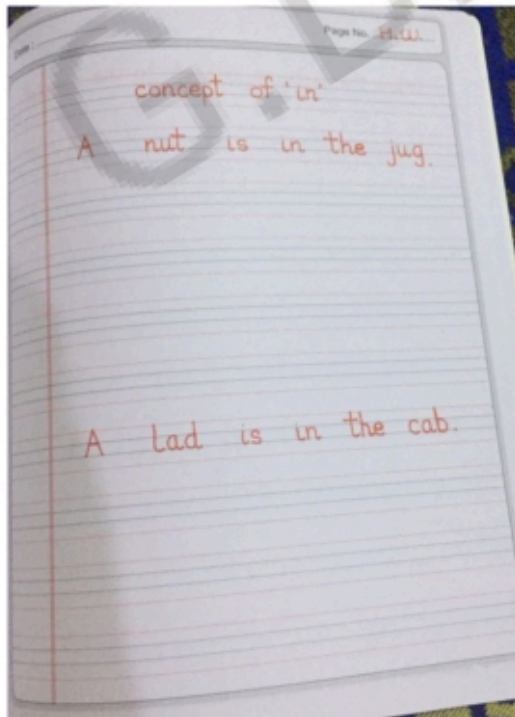 Date :
Page No. H.W.
concept of 'in'
A nut is in the jug.
A lad is in the cab.